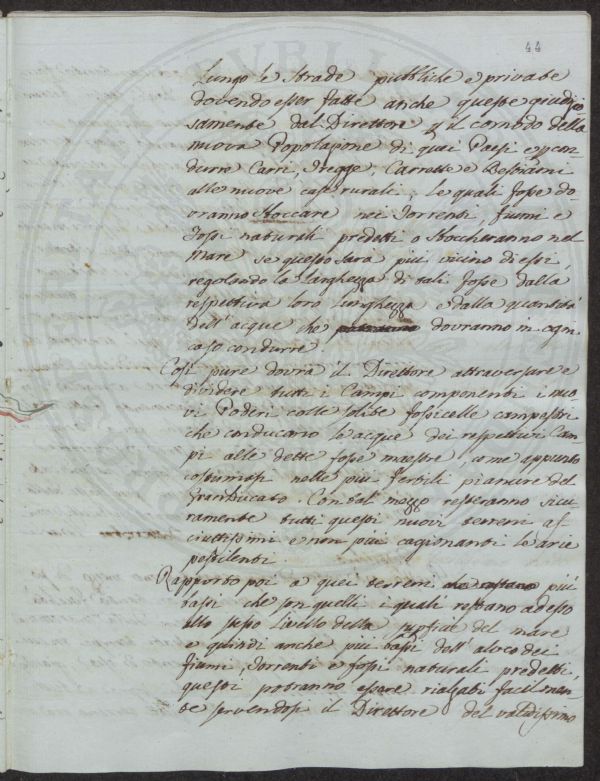 44
Lungo le Strade pubbliche e private
dovendo esser fatte anche queste giudizio
samente dal Direttore p il comodo della
nuova Popolazione di quei Paesi e p con
durre Carri, Tregge, Carrette e Bestiami
alle nuove case rurali; le quali fosse do
vranno Sboccare nei Torrenti, fiumi e
fossi naturali predetti o sboccheranno nel
Mare se questo sarà più vicino di essi,
regolando la Larghezza di tali fosse dalla
respettiva loro lunghezza e dalla quantità
dell'acque che dovranno in ogni
caso condurre.
Così pure dovrà il Direttore attraversare e
dividere tutti i Campi componenti i nuo
vi Poderi colle solite fossicelle campestri
che conducano le acque dei respettivi Cam
pi alle dette fosse maestre, come appunto
costumasi nelle più fertili pianure del
GranDucato. Con tal mezzo resteranno sicu
ramente tutti questi nuovi terreni as
ciuttissimi e non più cagionanti le arie
pestilenti.
Rapporto poi a quei terreni che restano più
bassi che son quelli i quali restano adesso
allo stesso Livello della supficie del mare
e quindi anche più bassi dell'alveo dei
fiumi, Torrenti e fossi naturali predetti,
questi potranno essere rialzati facilmen
te servendosi il Direttore del validissimo